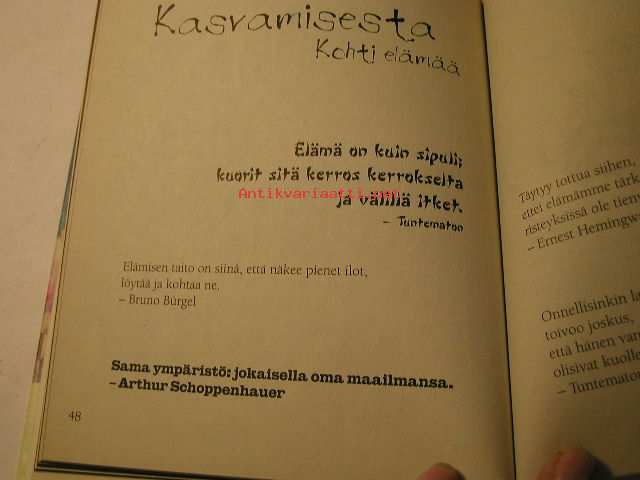 Kasvamisesta
Kohti elämää
Elämä on kuin sipuli;
kuorit sitä kerros kerrokselta
ja välillä itket.
– Tuntematon
Antikvariaatti.net
Elämisen taito on siinä, että näkee pienet ilot,
löytää ja kohtaa ne.
– Bruno Bürgel
Sama ympäristö: jokaisella oma maailmansa.
– Arthur Schoppenhauer
48
Täytyy tottua siihen,
ettei elämämme tärk
risteyksissä ole tienv
– Ernest Hemingw
Onnellisinkin la
toivoo joskus,
että hänen van
olisivat kuolle
– Tuntematon